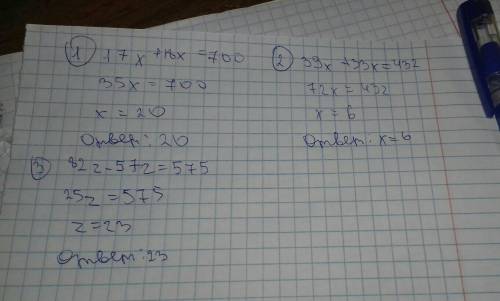 ① 17x + 18x = 700
35x = 700
x = 20
Ответ: 20
② 39x + 33x = 432
72x = 432
x = 6
Ответ: x = 6
③ 82z - 57z = 575
25z = 575
z = 23
Ответ: 23